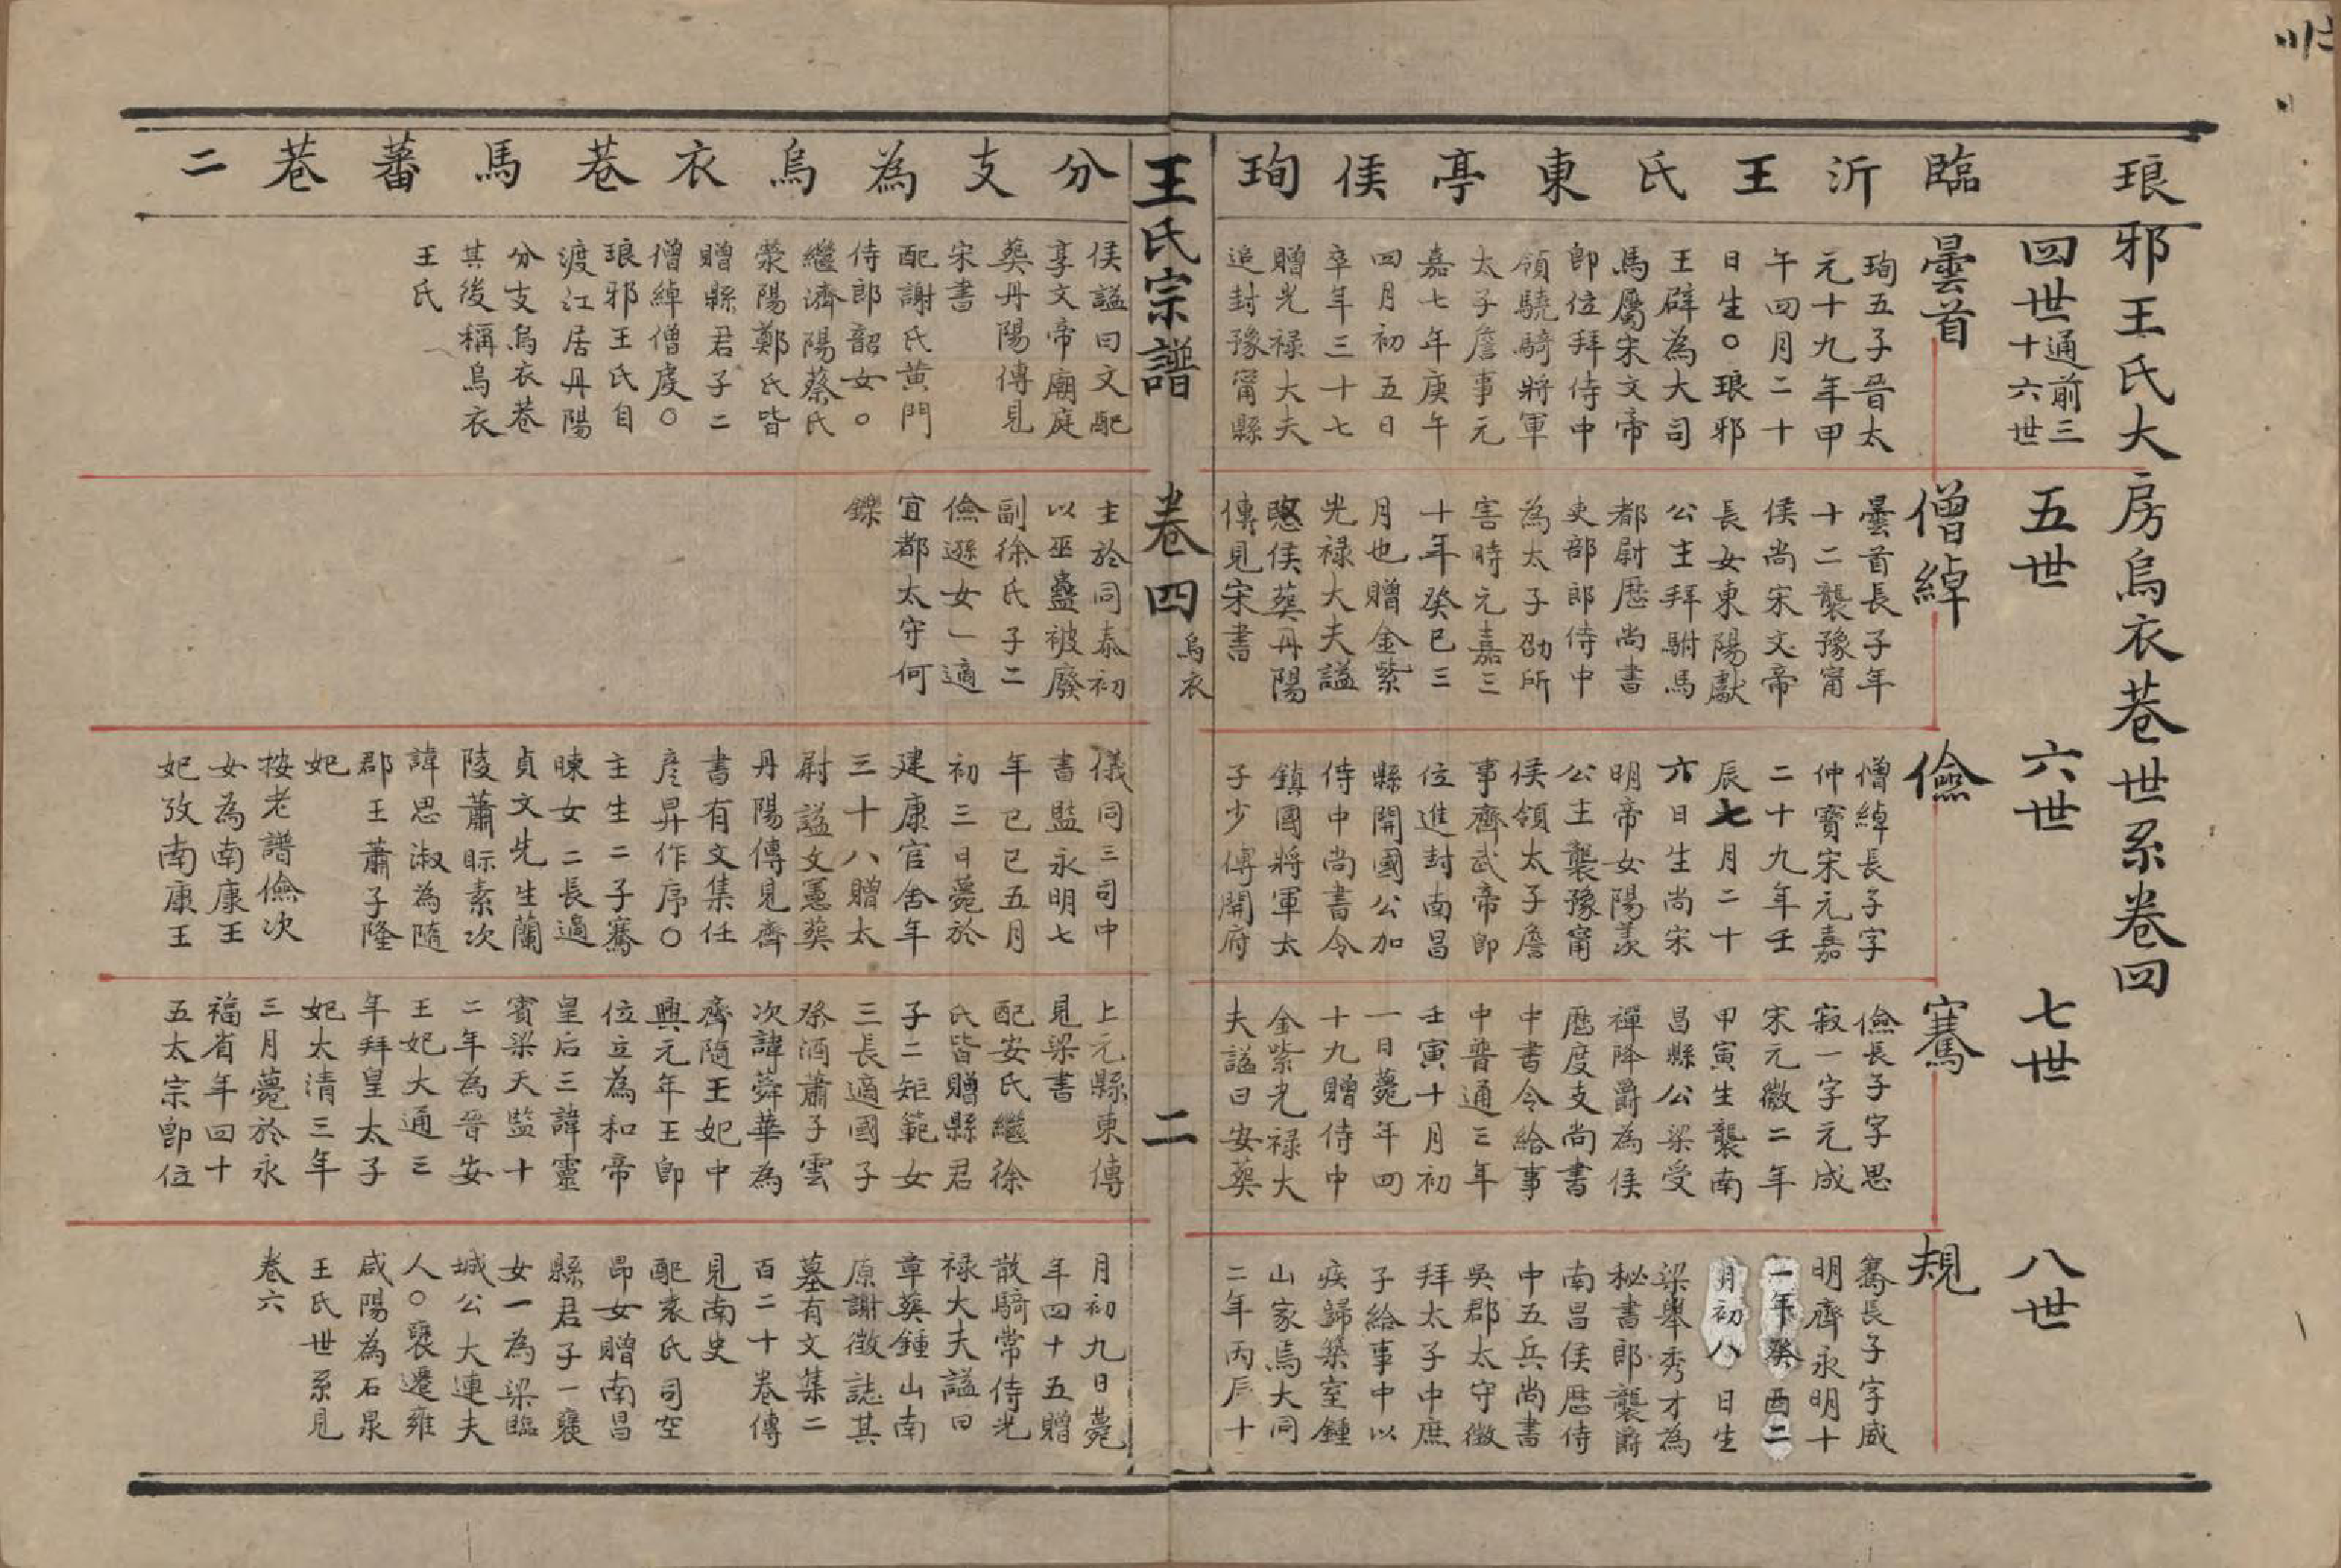 琅邪王氏大房烏衣巷世系卷四
臨沂王氏東亭侯珣分支為烏衣巷馬蕃巷二
四世通前三十六世
曇首
珣五子晉太
元十九年甲
午四月二十
日生○琅邪
王辟為大司
馬屬宋文帝
即位拜侍中
領驍騎將軍
太子詹事元
嘉七年庚午
四月初五日
卒年三十七
贈光禄大夫
追封豫甯縣
侯謚曰文配
享文帝廟庭
葬丹陽傳見
宋書
配謝氏黄門
侍郎韶女○
繼濟陽蔡氏
滎陽鄭氏皆
贈縣君子二
僧綽僧虔○
琅邪王氏自
渡江居丹陽
分支烏衣巷
其後稱烏衣
王氏
五世
僧綽
曇首長子年
十二襲豫甯
侯尚宋文帝
長女東陽獻
公主拜駙馬
都尉歷尚書
吏部郎侍中
為太子劭所
害時元嘉三
十年癸巳三
月也贈金紫
光禄大夫謚
愍侯葬丹陽
傳見宋書
主於同泰初
以巫蠱被廢
副徐氏子二
儉遜女一適
宜都太守何
鑠
六世
儉
僧綽長子字
仲寶宋元嘉
二十九年壬
辰七月二十
六日生尚宋
明帝女陽羡
公主襲豫甯
侯領太子詹
事齊武帝即
位進封南昌
縣開國公加
侍中尚書令
鎮國將軍太
子少傅開府
儀同三司中
書監永明七
年己巳五月
初三日薨於
建康官舍年
三十八贈太
尉謚文憲葬
丹陽傳見齊
書有文集任
彦昇作序○
主生二子騫
暕女二長適
貞文先生蘭
陵蕭眎素次
諱思淑為隨
郡王蕭子隆
妃
按老譜儉次
女為南康王
妃攷南康王
七世
騫
儉長子字思
寂一字元成
宋元徽二年
甲寅生襲南
昌縣公梁受
禪降爵為侯
歷度支尚書
中書令給事
中普通三年
壬寅十月初
一日薨年四
十九贈侍中
金紫光禄大
夫謚曰安葬
上元縣東傳
見梁書
配安氏繼徐
氏皆贈縣君
子二矩範女
三長適國子
祭酒蕭子雲
次諱蕣華為
齊隨王妃中
興元年王即
位立為和帝
皇后三諱靈
賓梁天監十
二年為晉安
王妃大通三
年拜皇太子
妃太清三年
三月薨於永
福省年四十
五太宗即位
八世
規
騫長子字威
明齊永明十
一年癸酉二
月初八日生
梁舉秀才為
秘書郎襲爵
南昌侯歷侍
中五兵尚書
吳郡太守徵
拜太子中庶
子給事中以
疾歸築室鍾
山家焉大同
二年丙辰十
月初九日薨
年四十五贈
散騎常侍光
禄大夫謚曰
章葬鍾山南
原謝徵誌其
墓有文集二
百二十卷傳
見南史
配袁氏司空
昂女贈南昌
縣君子一襃
女一為梁臨
城公大連夫
人○襃遷雍
咸陽為石泉
王氏世系見
卷六
王氏宗譜
卷四
烏衣
二